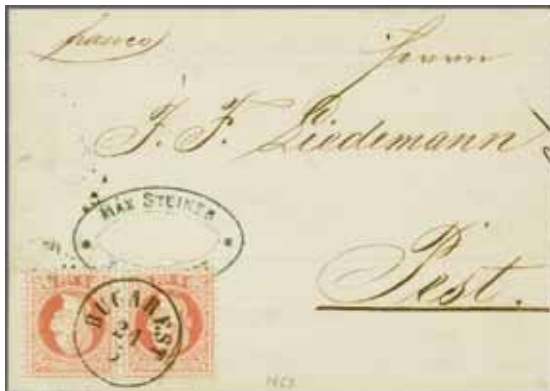 franco
Herrn
J. F. Liedemann
MAX STEINER
Pest.
BUCAREST